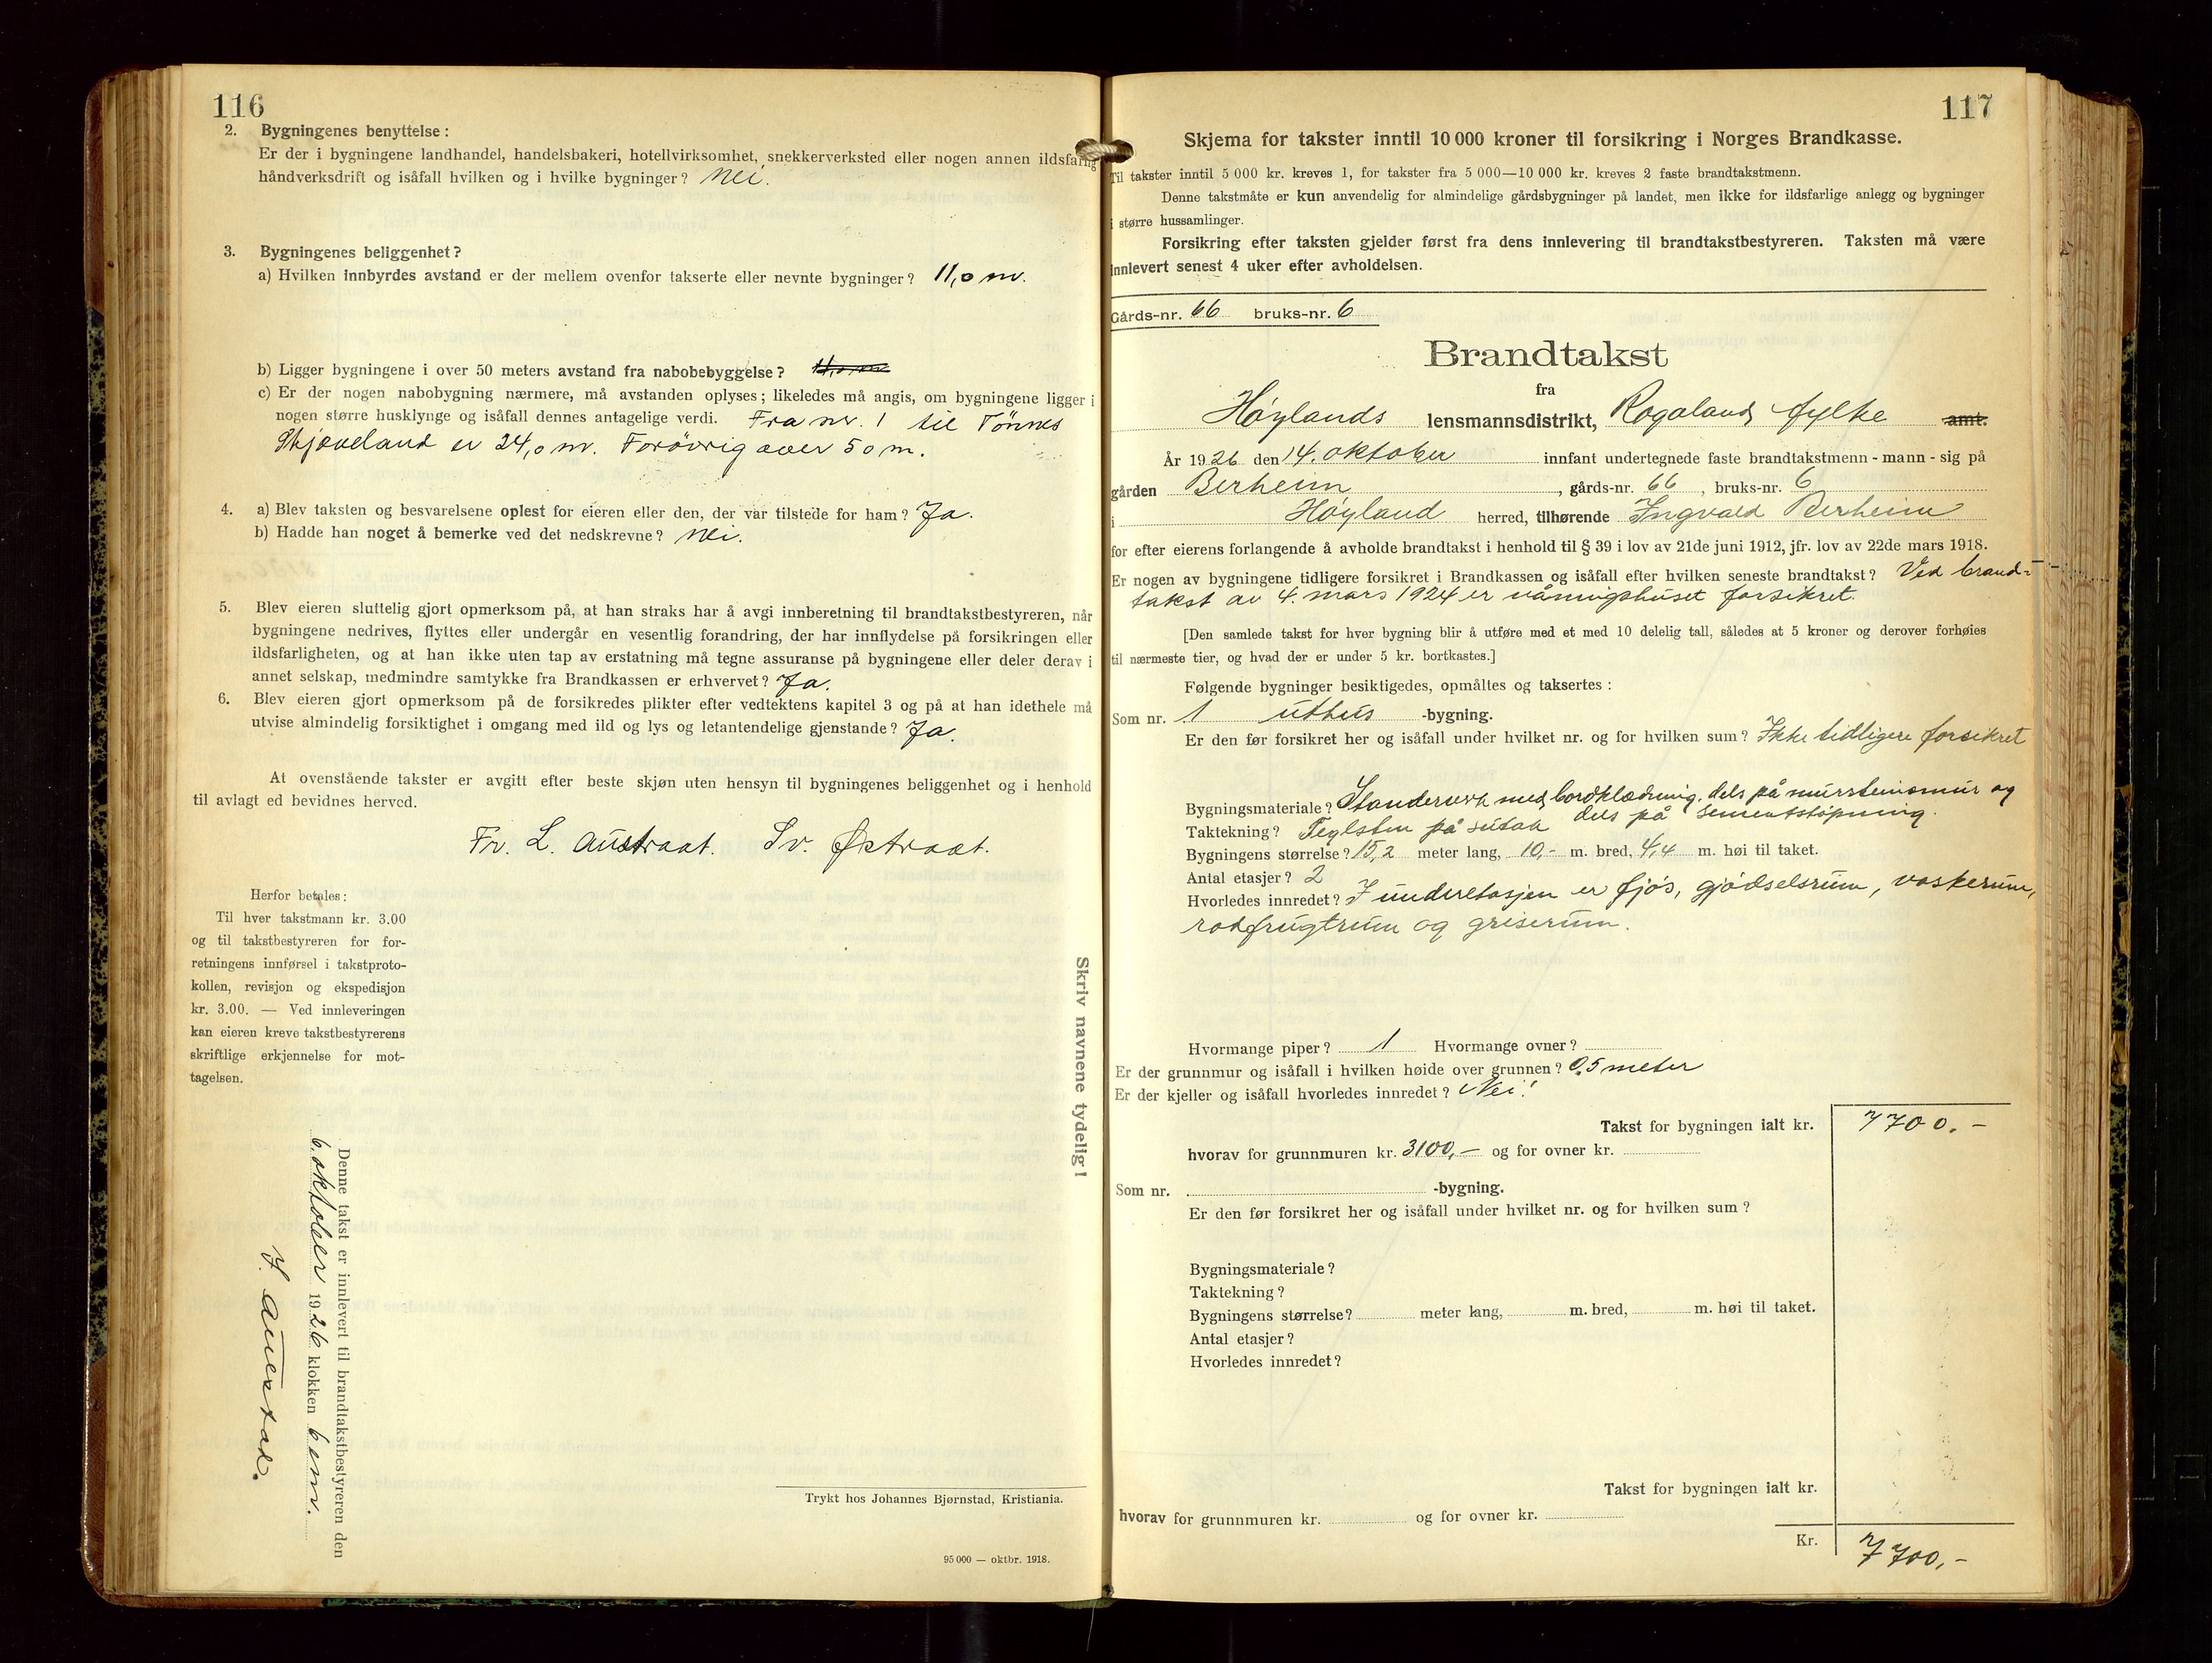 116
2. Bygningenes benyttelse:
Er der i bygningene landhandel, handelsbakeri, hotellvirksomhet, snekkerverksted eller nogen annen ildsfarlig
håndverksdrift og isåfall hvilken og i hvilke bygninger? Nei.
3. Bygningenes beliggenhet?
a) Hvilken innbyrdes avstand er der mellem ovenfor takserte eller nevnte bygninger? 11,0 m.
b) Ligger bygningene i over 50 meters avstand fra nabobebyggelse?
c) Er der nogen nabobygning nærmere, må avstanden oplyses; likeledes må angis, om bygningene ligger i
nogen større husklynge og isåfall dennes antagelige verdi. Fra nr. 1 til Tönnes
Skjæveland er 24,0 m. Forövrig over 50 m.
4. a) Blev taksten og besvarelsene oplest for eieren eller den, der var tilstede for ham? Ja.
b) Hadde han noget å bemerke ved det nedskrevne? Nei.
5. Blev eieren sluttelig gjort opmerksom på, at han straks har å avgi innberetning til brandtakstbestyreren, når
bygningene nedrives, flyttes eller undergår en vesentlig forandring, der har innflydelse på forsikringen eller
ildsfarligheten, og at han ikke uten tap av erstatning må tegne assuranse på bygningene eller deler derav i
annet selskap, medmindre samtykke fra Brandkassen er erhvervet? Ja.
6. Blev eieren gjort opmerksom på de forsikredes plikter efter vedtektens kapitel 3 og på at han idethele må
utvise almindelig forsiktighet i omgang med ild og lys og letantendelige gjenstande? Ja.
At ovenstående takster er avgitt efter beste skjøn uten hensyn til bygningenes beliggenhet og i henhold
til avlagt ed bevidnes herved.
Fr. L. Austraat. Sv. Østraat.
Herfor betales:
Til hver takstmann kr. 3.00
og til takstbestyreren for for-
retningens innførsel i takstproto-
kollen, revisjon og ekspedisjon
kr. 3.00. — Ved innleveringen
kan eieren kreve takstbestyrerens
skriftlige erkjennelse for mot-
tagelsen.
Skriv navnene tydelig!
Denne takst er innlevert til brandtakstbestyreren den
6. oktober 1926 klokken 6 em.
Trykt hos Johannes Bjørnstad, Kristiania.
95 000 — oktbr. 1918.
117
Skjema for takster inntil 10 000 kroner til forsikring i Norges Brandkasse.
Til takster inntil 5 000 kr. kreves 1, for takster fra 5 000—10 000 kr. kreves 2 faste brandtakstmenn.
Denne takstmåte er kun anvendelig for almindelige gårdsbygninger på landet, men ikke for ildsfarlige anlegg og bygninger
i større hussamlinger.
Forsikring efter taksten gjelder først fra dens innlevering til brandtakstbestyreren. Taksten må være
innlevert senest 4 uker efter avholdelsen.
Gårds-nr. 66 bruks-nr. 6
Brandtakst
fra
Høylands lensmannsdistrikt, Rogaland fylke amt.
År 1926 den 14. oktober innfant undertegnede faste brandtakstmenn - mann - sig på
gården Berheim, gårds-nr. 66, bruks-nr. 6
i Høyland herred, tilhørende Ingvald Berheim
for efter eierens forlangende å avholde brandtakst i henhold til § 39 i lov av 21de juni 1912, jfr. lov av 22de mars 1918.
Er nogen av bygningene tidligere forsikret i Brandkassen og isåfall efter hvilken seneste brandtakst? Ved brand-
takst av 4. mars 1924 er våningshuset forsikret.
[Den samlede takst for hver bygning blir å utføre med et med 10 delelig tall, således at 5 kroner og derover forhøies
til nærmeste tier, og hvad der er under 5 kr. bortkastes.]
Følgende bygninger besiktigedes, opmåltes og taksertes:
Som nr. 1 uthus -bygning.
Er den før forsikret her og isåfall under hvilket nr. og for hvilken sum? Ikke tidligere forsikret
Bygningsmateriale? Standerverk med bordklædning. dels på murstensmur og
dels på sementstöpning.
Taktekning? Teglsten på sutak
Bygningens størrelse? 15,2 meter lang, 10,- m. bred, 4,4 m. høi til taket.
Antal etasjer? 2
Hvorledes innredet? I underetasjen er fjös, gjödselsrum, vaskerum,
rodfrugtrum og griserum.
Hvormange piper? 1 Hvormange ovner?
Er der grunnmur og isåfall i hvilken høide over grunnen? 0,5 meter
Er der kjeller og isåfall hvorledes innredet? Nei!
Takst for bygningen ialt kr. 7700,-
hvorav for grunnmuren kr. 3100,- og for ovner kr.
Som nr. -bygning.
Er den før forsikret her og isåfall under hvilket nr. og for hvilken sum?
Bygningsmateriale?
Taktekning?
Bygningens størrelse? meter lang, m. bred, m. høi til taket.
Antal etasjer?
Hvorledes innredet?
Takst for bygningen ialt kr.
hvorav for grunnmuren kr. og for ovner kr.
Kr. 7700,-